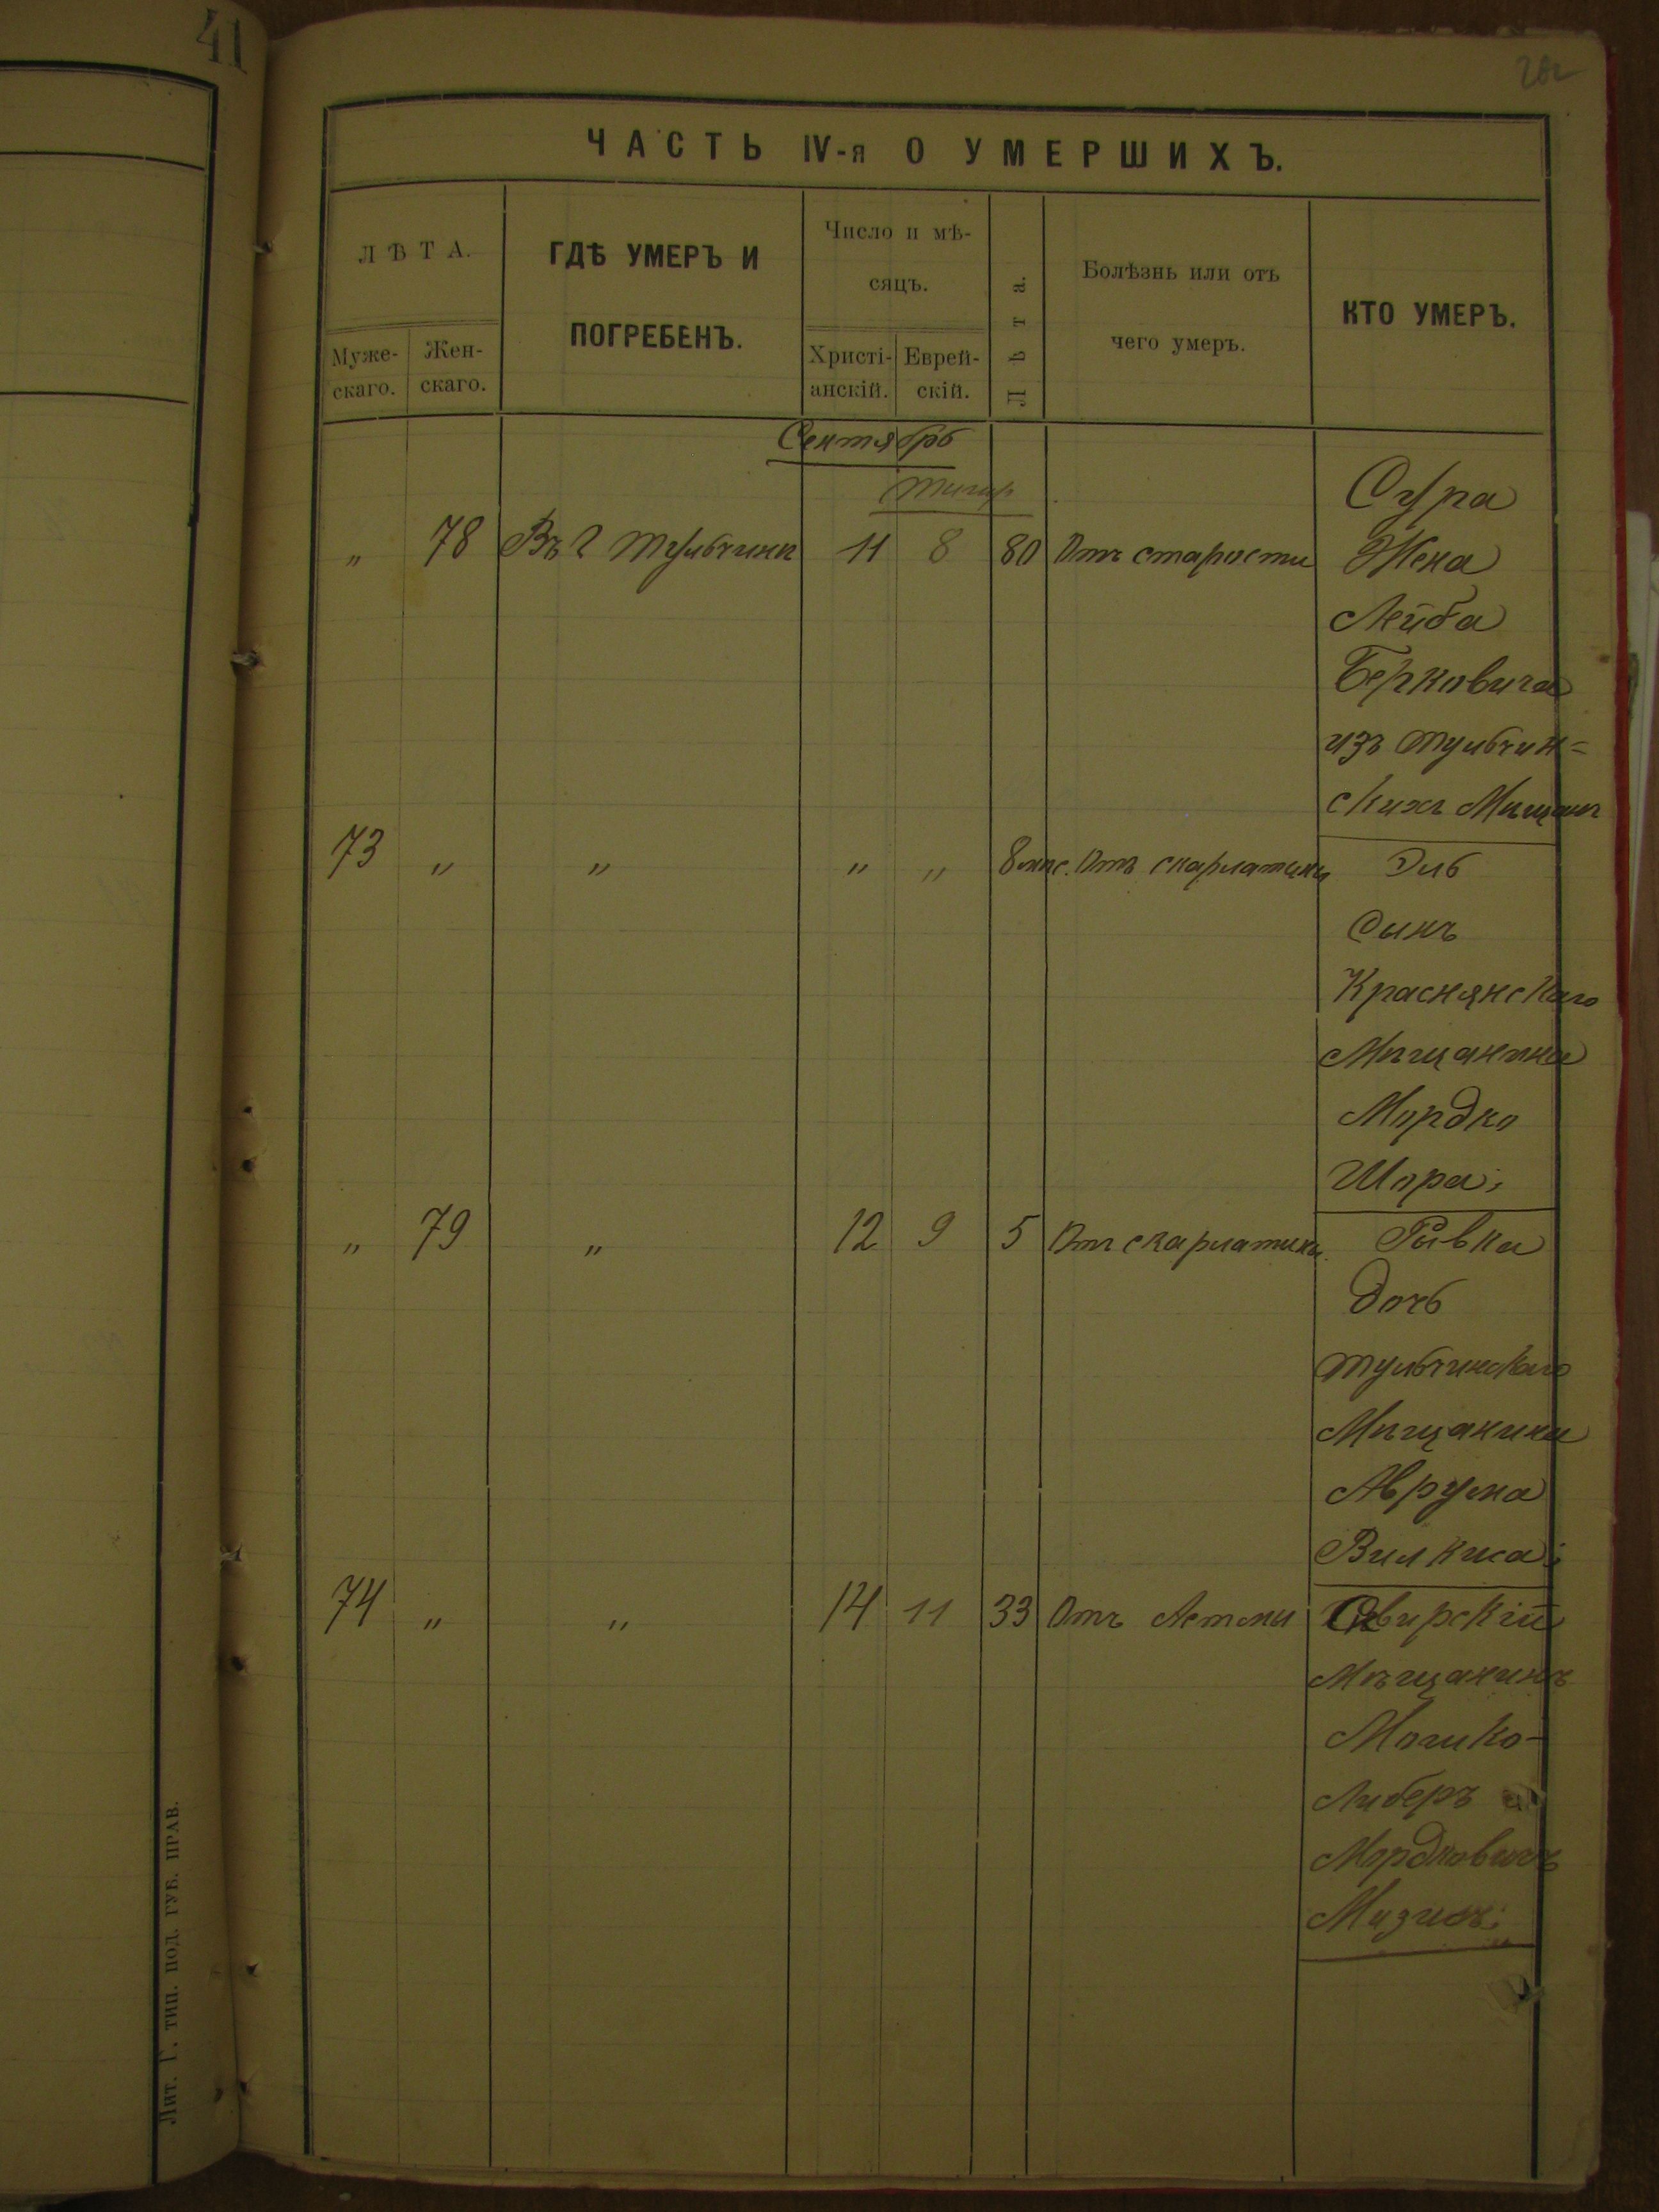 41
ЧАСТЬ IV-я О УМЕРШИХЪ.
ЛѢТА.
Муже-
скаго.
Жен-
скаго.
ГДѢ УМЕРЪ И
ПОГРЕБЕНЪ.
Число и мѣ-
сяцъ.
Христі-
анскій.
Еврей-
скій.
Лѣта.
Болѣзнь или отъ
чего умеръ.
КТО УМЕРЪ.
Сентябрь
Тишр
Сура
„ 78 Въ г Тульчинѣ 11 8 80 Отъ старости Жена
Лейба
Берковича
изъ Тульчин=
скихъ Мѣщанъ
73 „ „ „ „ 8 мѣс. Отъ скарлатины Эль
Сынъ
Краснянскаго
Мѣщанина
Мордко
Шора;
„ 79 „ 12 9 5 Отъ скарлатины. Рывка
дочь
Тульчинскаго
Мѣщанина
Аврума
Вилкиса;
74 „ „ 14 11 33 Отъ Астмы Сквирскій
Мѣщанинъ
Мошко-
Либеръ
Мордковичъ
Лит. Г. тип. под. ГУБ. ПРАВ.